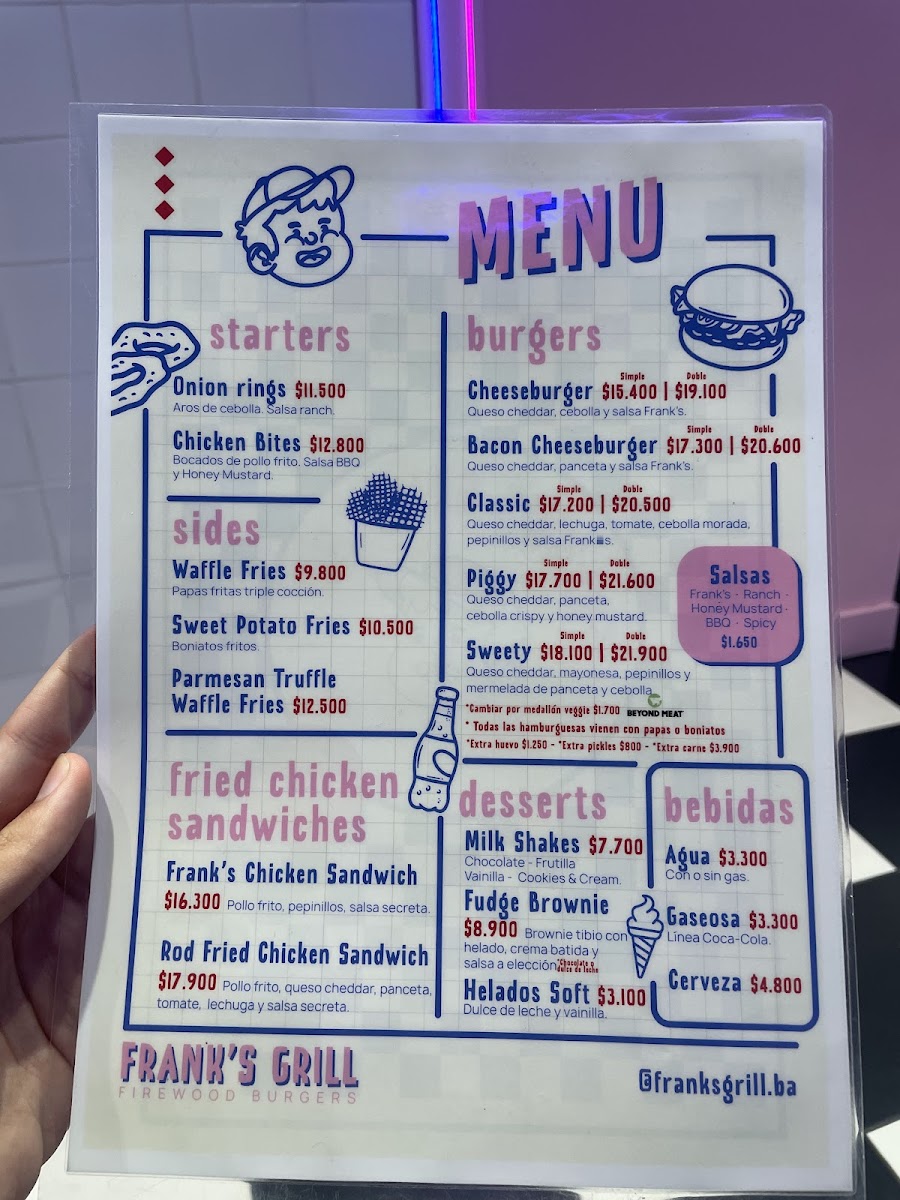 MENU
starters
Onion rings $11.500
Aros de cebolla. Salsa ranch.
Chicken Bites $12.800
Bocados de pollo frito. Salsa BBQ
y Honey Mustard.
sides
Waffle Fries $9.800
Papas fritas triple cocción.
Sweet Potato Fries $10.500
Boniatos fritos.
Parmesan Truffle
Waffle Fries $12.500
fried chicken
sandwiches
Frank's Chicken Sandwich
$16.300 Pollo frito, pepinillos, salsa secreta.
Rod Fried Chicken Sandwich
$17.900 Pollo frito, queso cheddar, panceta,
tomate, lechuga y salsa secreta.
burgers
Simple Doble
Cheeseburger $15.400 | $19.100
Queso cheddar, cebolla y salsa Frank's.
Simple Doble
Bacon Cheeseburger $17.300 | $20.600
Queso cheddar, panceta y salsa Frank's.
Simple Doble
Classic $17.200 | $20.500
Queso cheddar, lechuga, tomate, cebolla morada,
pepinillos y salsa Frank s.
Simple Doble
Piggy $17.700 | $21.600
Queso cheddar, panceta,
cebolla crispy y honey mustard.
Simple Doble
Sweety $18.100 | $21.900
Queso cheddar, mayonesa, pepinillos y
mermelada de panceta y cebolla
*Cambiar por medallón veggie $1.700 BEYOND MEAT
* Todas las hamburguesas vienen con papas o boniatos
*Extra huevo $1.250 - *Extra pickles $800 - *Extra carne $3.900
Salsas
Frank's - Ranch -
Honey Mustard -
BBQ - Spicy
$1.650
desserts
Milk Shakes $7.700
Chocolate - Frutilla
Vainilla - Cookies & Cream.
Fudge Brownie
$8.900 Brownie tibio con
helado, crema batida y
salsa a elección *Chocolate o
dulce de leche
Helados Soft $3.100
Dulce de leche y vainilla.
bebidas
Agua $3.300
Con o sin gas.
Gaseosa $3.300
Línea Coca-Cola.
Cerveza $4.800
FRANK'S GRILL
FIREWOOD BURGERS
@franksgrill.ba